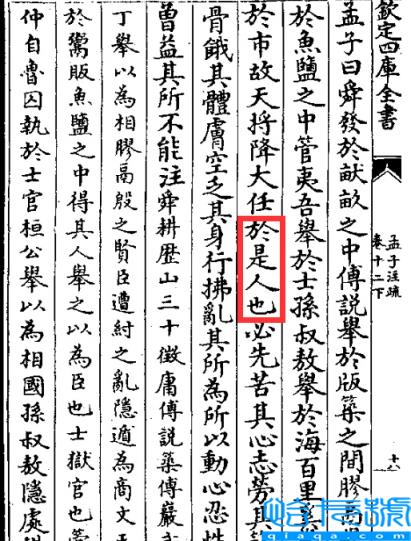 欽定四庫全書
孟子注疏
卷十二下
十八
孟子曰舜發於畎畝之中傅説舉於版築之間膠鬲
於魚鹽之中管夷吾舉於士孫叔敖舉於海百里奚
於市故天將降大任於是人也必先苦其心志勞其
骨餓其體膚空乏其身行拂亂其所為所以動心忍性
曾益其所不能注舜耕歷山三十徵庸傅説築傅巖
丁舉以為相膠鬲殷之賢臣遭紂之亂隱遁為商文王
於鬻販魚鹽之中得其人舉之以為臣也士獄官也管
仲自魯囚執於士官桓公舉以為相國孫叔敖隱處
qiaqa.com